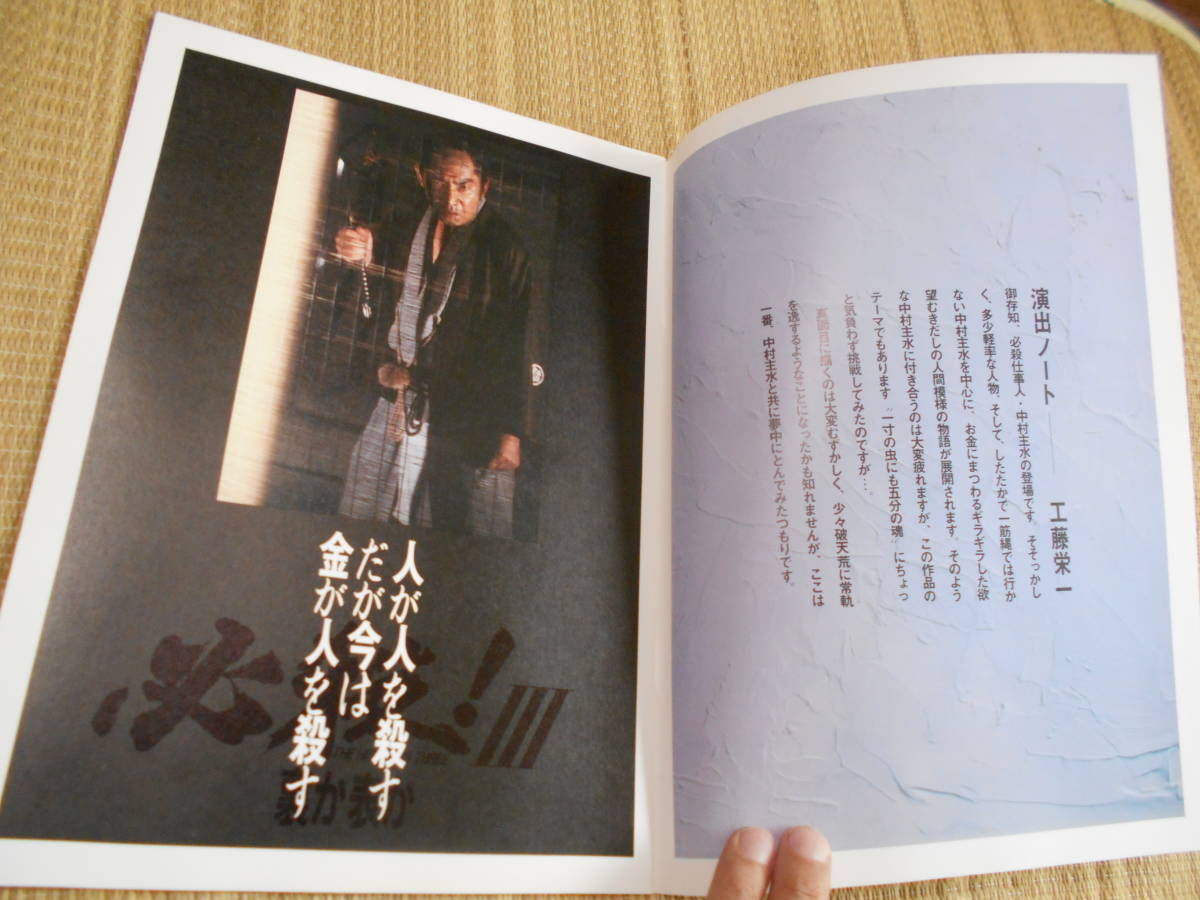 演出ノート――工藤栄一
御存知、必殺仕事人・中村主水の登場です。そそっかし
く、多少軽率な人物、そして、したたかで一筋縄では行か
ない中村主水を中心に、お金にまつわるギラギラした欲
望むきだしの人間模様の物語が展開されます。そのよう
な中村主水に付き合うのは大変疲れますが、この作品の
テーマでもあります〝一寸の虫にも五分の魂〟にちょっ
と気負わず挑戦してみたのですが…。
真面目に描くのは大変むずかしく、少々破天荒に常軌
を逸するようなことになったかも知れませんが、ここは
一番、中村主水と共に夢中にとんでみたつもりです。
人が人を殺す
だが今は
金が人を殺す
必殺!III
裏か表か